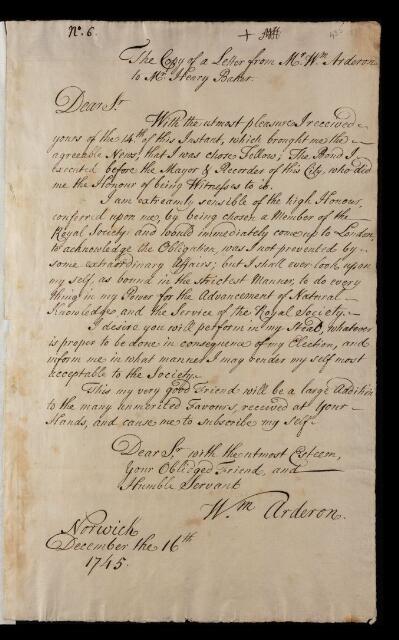 No. 6.
The Copy of a Letter from Mr. Wm. Arderon
to Mr. Henry Baker.
Dear Sr.
With the utmost pleasure I received
yours of the 14th. of this Instant, which brought me the
agreeable News, that I was chose Fellow; The Bond I
executed before the Mayor & Recorder of this City, who did
me the Honour of being Witnesses to it.
I am extreamly sensible of the high Honour,
conferred upon me, by being chosen a Member of the
Royal Society and would immediately come up to London,
to acknowledge the Obligation, was I not prevented by
some extraordinary Affairs; but I shall ever look upon
my self, as bound in the Strictest Manner, to do every
thing in my Power for the Advancement of Natural
Knowledge, and the Service of the Royal Society.
I desire you will perform in my Stead, whatever
is proper to be done in consequence of my Election, and
inform me in what manner I may render my self most
acceptable to the Society.
This my very good Friend will be a large Addition
to the many unmerited Favours, received at Your
Hands, and cause me to subscribe my self
Dear Sr. with the utmost Esteem,
Your Obliged Friend, and
Humble Servant
Wm. Arderon.
Norwich
December the 16th
1745.